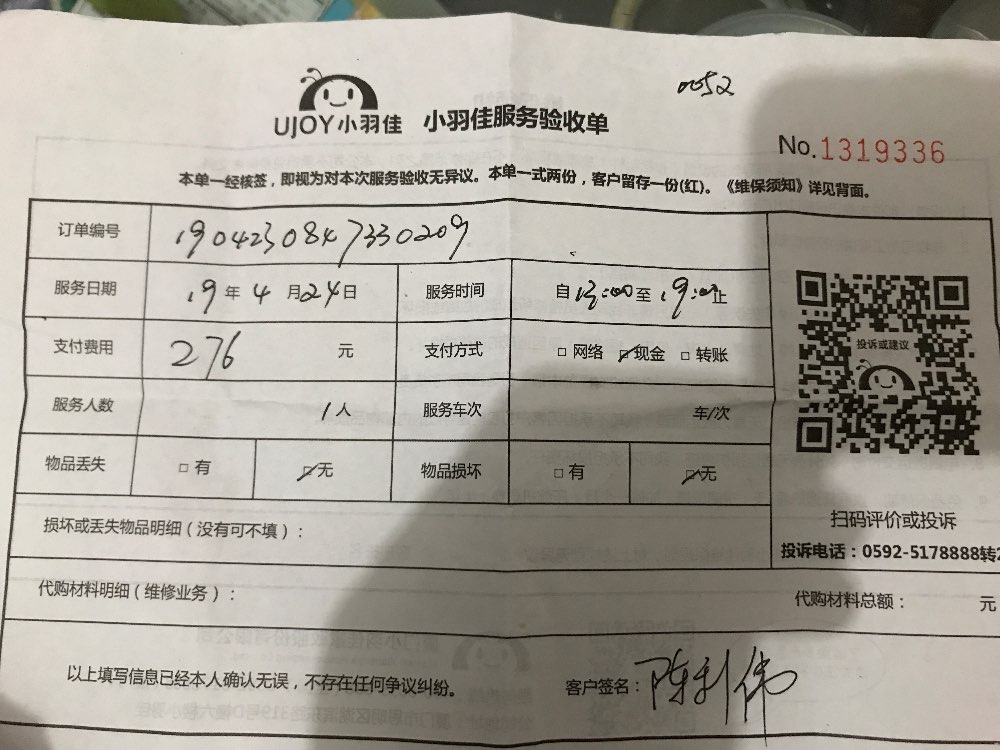 0052
UJOY小羽佳 小羽佳服务验收单
No.1319336
本单一经核签，即视为对本次服务验收无异议。本单一式两份，客户留存一份(红)。《维保须知》详见背面。
订单编号 190423084733 0209
服务日期 19年4月24日 服务时间 自13:00至19:00止
支付费用 276 元 支付方式 □网络 ☑现金 □转账
投诉或建议
服务人数 1人 服务车次 车/次
物品丢失 □有 ☑无 物品损坏 □有 ☑无
扫码评价或投诉
损坏或丢失物品明细（没有可不填）：
投诉电话：0592-5178888转2
代购材料明细（维修业务）： 代购材料总额： 元
以上填写信息已经本人确认无误，不存在任何争议纠纷。 客户签名：陈利伟